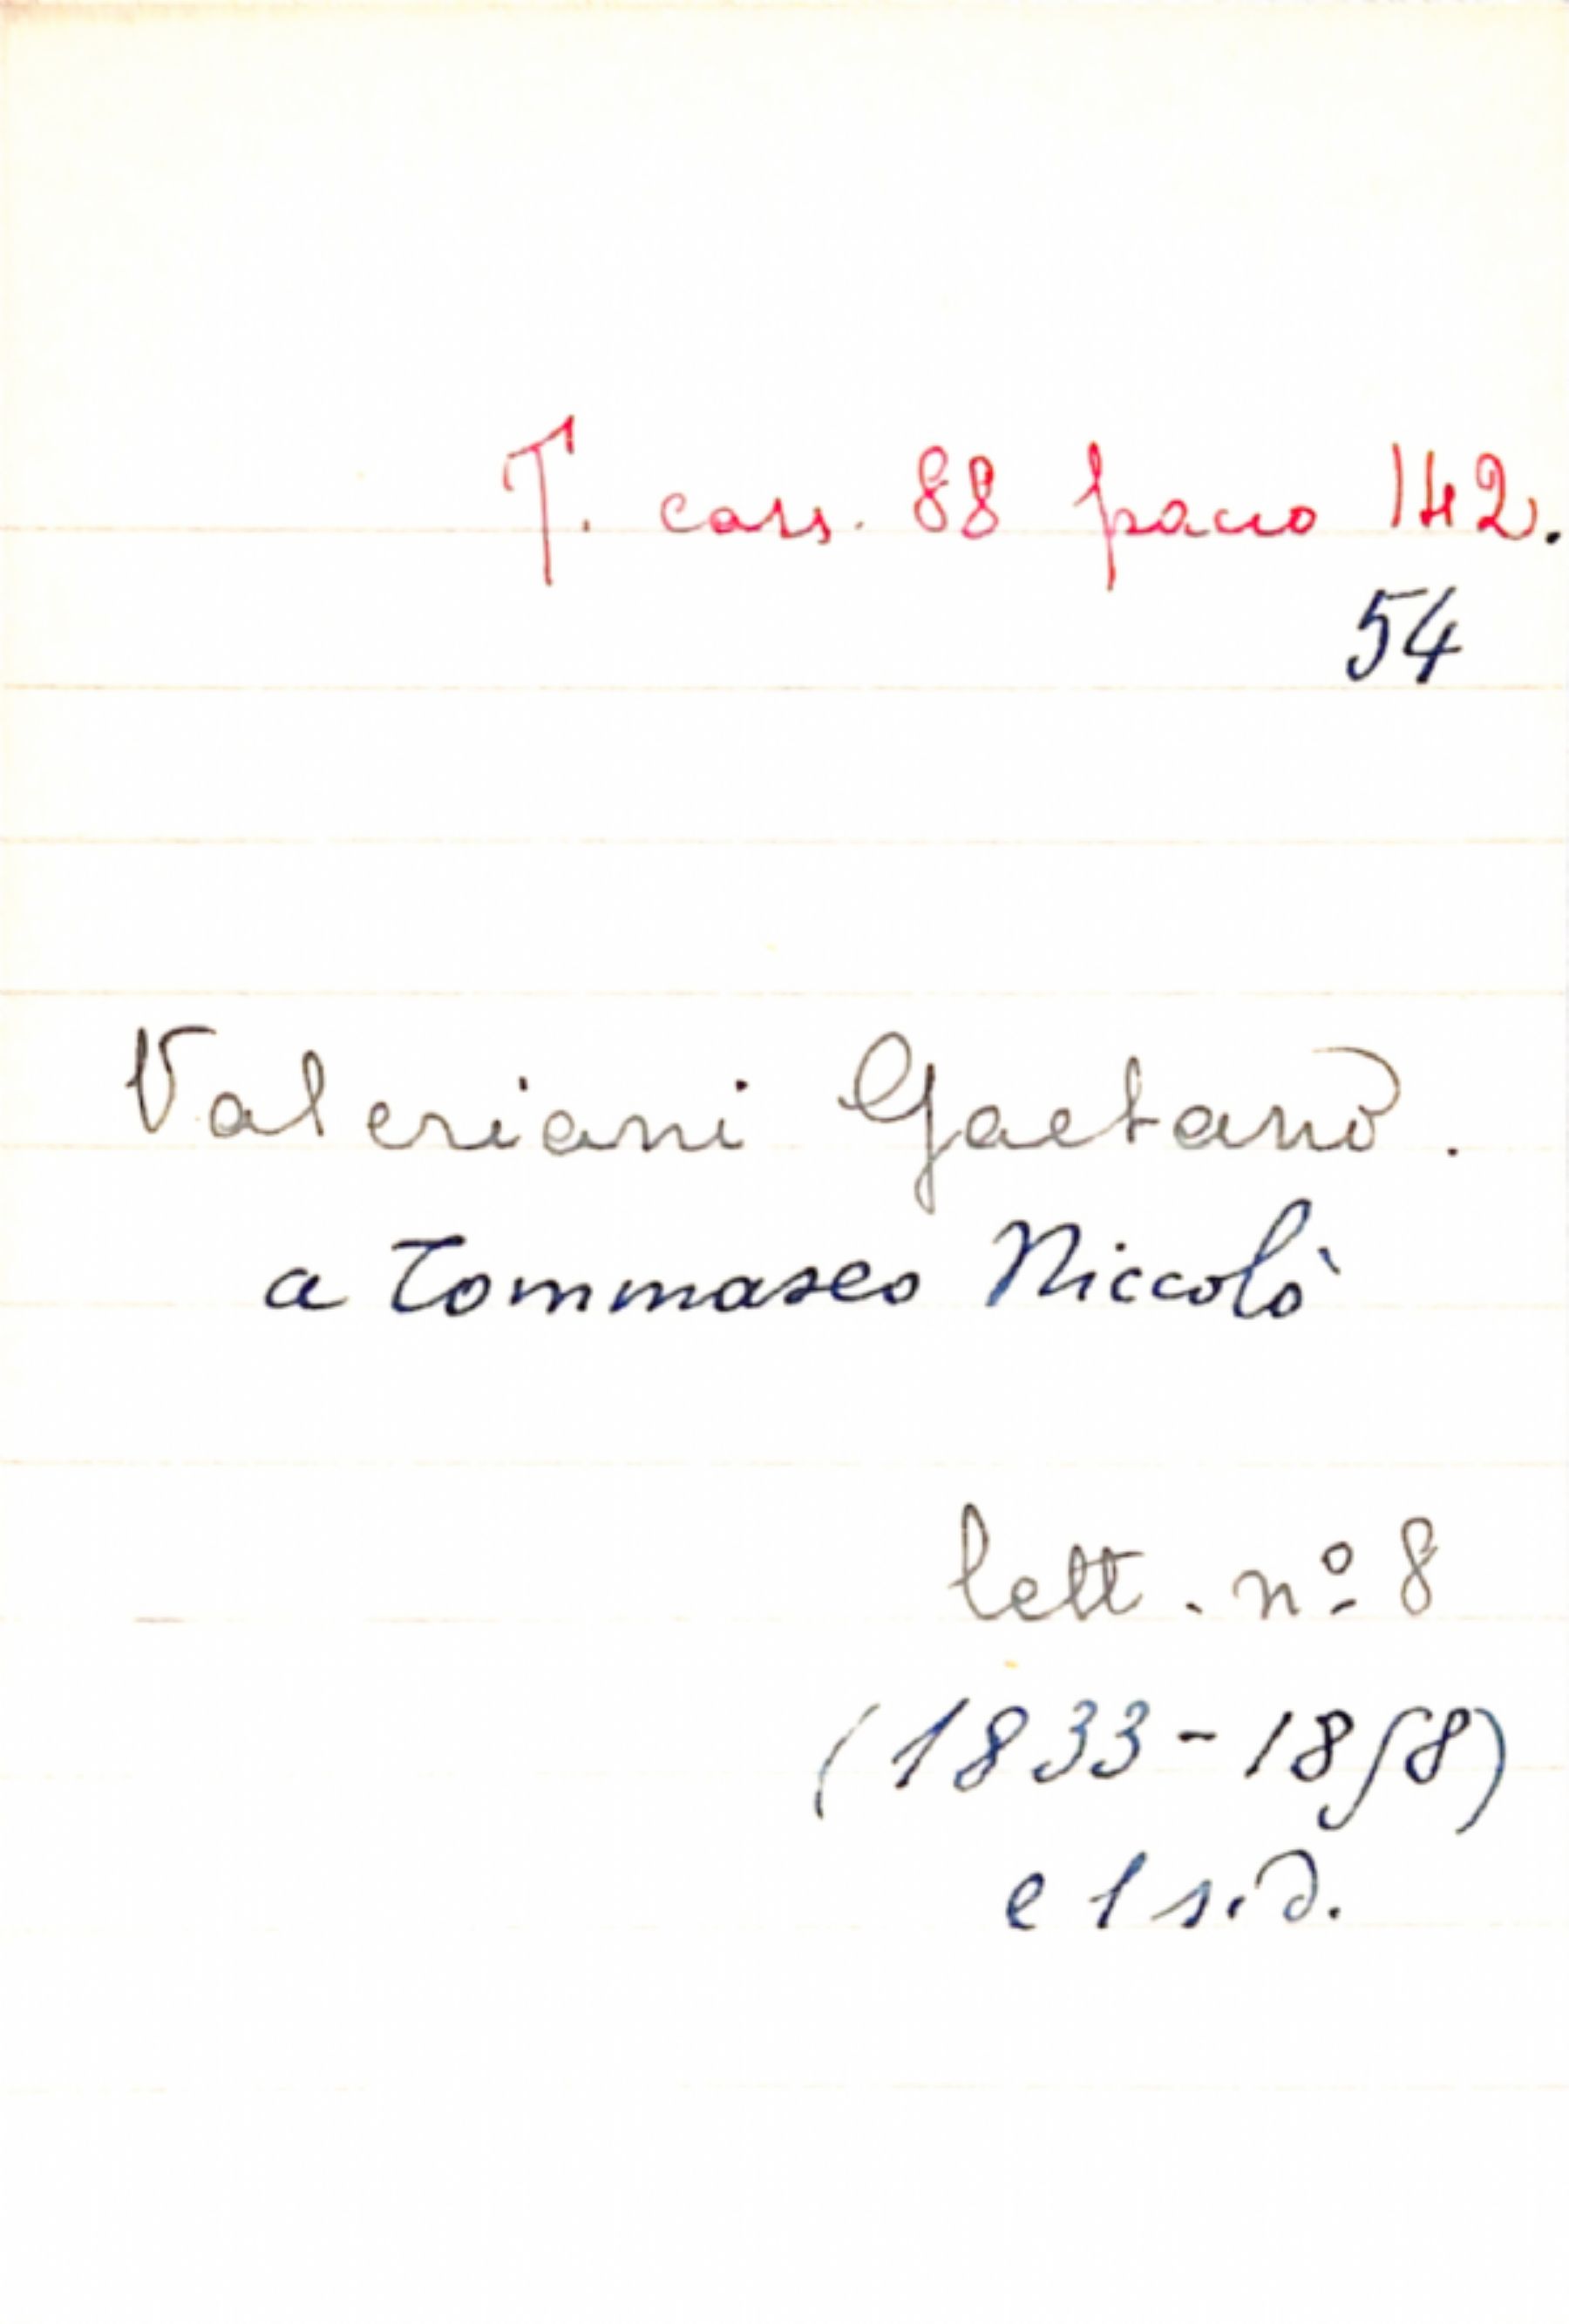 T. cass. 88 pacco 142.
54
Valeriani Gaetano.
a Tommaseo Niccolò
lett. nº 8
(1833-1858)
e 1 s.d.